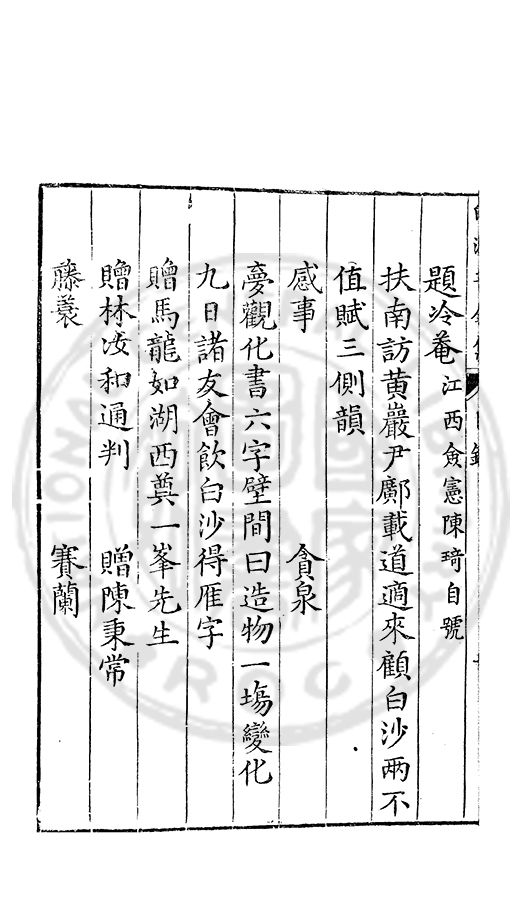 題冷菴江西僉憲陳琦自號
扶南訪黃巖尹鄺載道適來顧白沙兩不
值賦三側韻
感事　貪泉
夢觀化書六字壁間曰造物一塲變化
九日諸友會飲白沙得雁字
贈馬龍如湖西奠一峯先生
贈林汝和通判　贈陳秉常
藤蓑　賽蘭